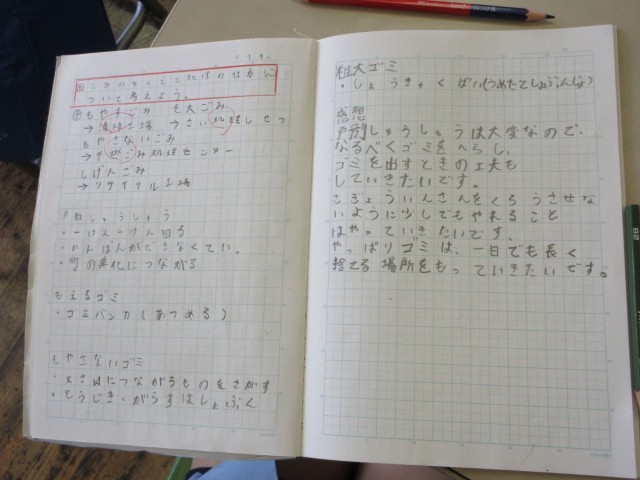 ついて考えよう。
もやすごみ 粗大ごみ
→清掃工場 →さい処理しせつ
もやさないごみ
→不燃ごみ処理センター
しげんごみ
→リサイクル工場
戸別しゅうしゅう
・一けん一けん回る
・かんばんができなくてい。
・町の美化につながる
もえるゴミ
・ゴミバンカ(あつめる)
もやさないゴミ
・大さ田につながるものをさがす
・とうじき・がらすは
粗大ゴミ
・しょうきゃく ばい(うめたてしょぶんじょ)
感想
戸別しゅうしゅうは大変なので、
なるべくゴミをへらし、
ゴミを出すときの工夫も
していきたいです。
さぎょういんさんをくろうさせな
いように少しでもやれること
はやっていきたいです。
やっぱりゴミは、一日でも長く
捨てる場所をもっていきたいです。